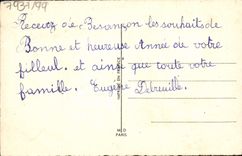 7931/99
Recevez de Besançon les souhaits de
Bonne et heureuse Année de votre
filleul. et ainsi que toute votre
famille. Eugène Debruille.
MED
PARIS